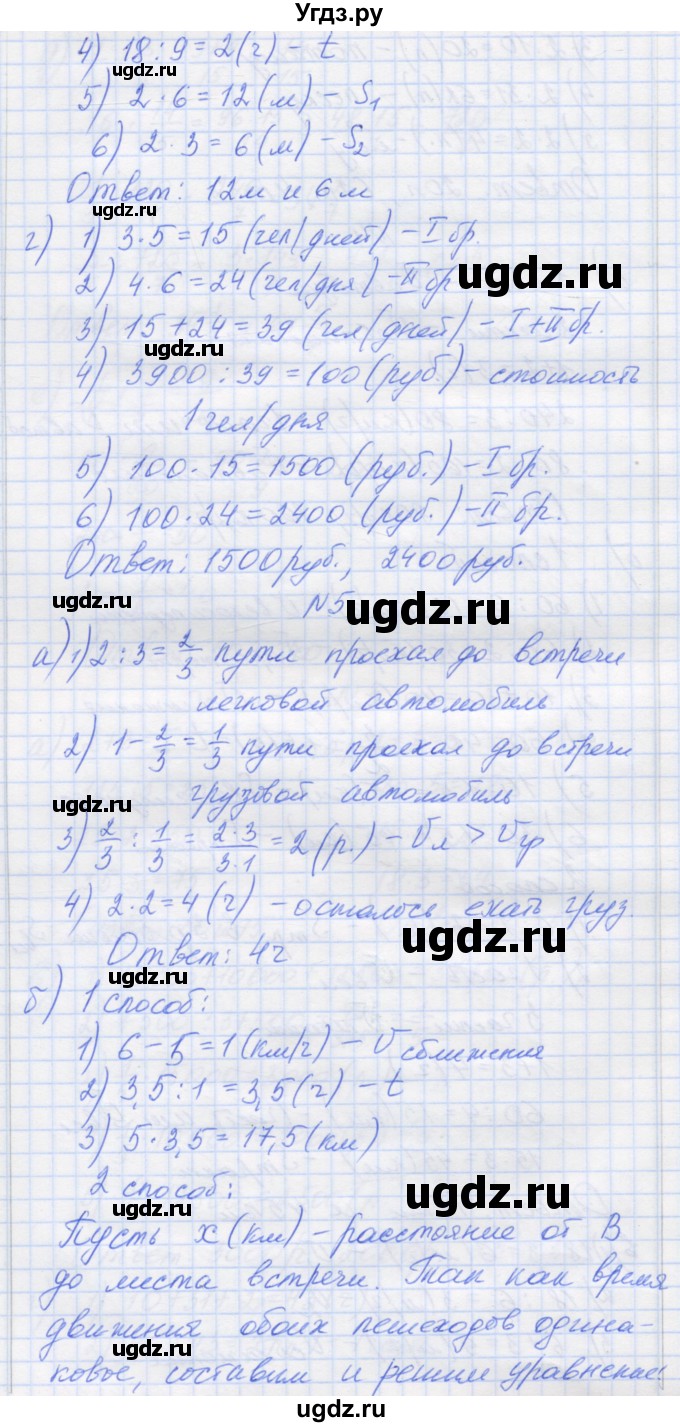 Угдз.ру
4) 18 : 9 = 2 (ч) – t
5) 2 · 6 = 12 (м) – S₁
6) 2 · 3 = 6 (м) – S₂
Ответ: 12 м и 6 м
г) 1) 3 · 5 = 15 (чел/дней) – I бр.
2) 4 · 6 = 24 (чел/дня) – II бр
3) 15 + 24 = 39 (чел/дней) – I + II бр.
4) 3900 : 39 = 100 (руб.) – стоимость
1 чел/дня
5) 100 · 15 = 1500 (руб.) – I бр.
6) 100 · 24 = 2400 (руб.) – II бр.
Ответ: 1500 руб., 2400 руб.
№5
а) 1) 2 : 3 = 2/3 пути проехал до встречи
легковой автомобиль
2) 1 – 2/3 = 1/3 пути проехал до встречи
грузовой автомобиль
3) 2/3 : 1/3 = 2·3/3·1 = 2 (р.) – Vл > Vгр
4) 2 · 2 = 4 (ч) – осталось ехать груз.
Ответ: 4 ч
б) 1 способ:
1) 6 – 5 = 1 (км/ч) – V сближения
2) 3,5 : 1 = 3,5 (ч) – t
3) 5 · 3,5 = 17,5 (км)
2 способ:
Пусть x (км) – расстояние от В
до места встречи. Так как время
движения обоих пешеходов одина-
ковое, составим и решим уравнение:
ugdz.ru
ugdz.ru
ugdz.ru
ugdz.ru
ugdz.ru
ugdz.ru
ugdz.ru
ugdz.ru
ugdz.ru
ugdz.ru
ugdz.ru
ugdz.ru
ugdz.ru